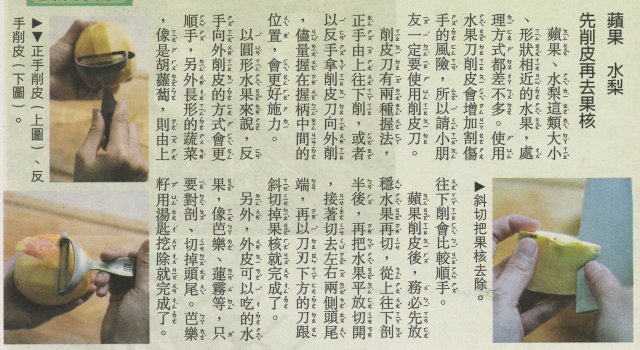 蘋果　水梨
先削皮再去果核
蘋果、水梨這類大小
、形狀相近的水果，處
理方式都差不多。使用
水果刀削皮會增加割傷
手的風險，所以請小朋
友一定要使用削皮刀。
削皮刀有兩種握法，
正手由上往下削，或者
以反手拿削皮刀向外削
，儘量握在握柄中間的
位置，會更好施力。
以圓形水果來說，反
手向外削皮的方式會更
順手，另外長形的蔬菜
，像是胡蘿蔔，則由上
▶▼正手削皮（上圖）、反
手削皮（下圖）。
▶斜切把果核去除。
往下削會比較順手。
蘋果削皮後，務必先放
穩水果再切，從上往下剖
半後，再把水果平放切開
，接著切去左右兩側頭尾
端，再以刀刃下方的刀跟
斜切掉果核就完成了。
另外，外皮可以吃的水
果，像芭樂、蓮霧等，只
要對剖、切掉頭尾。芭樂
籽用湯匙挖除就完成了。